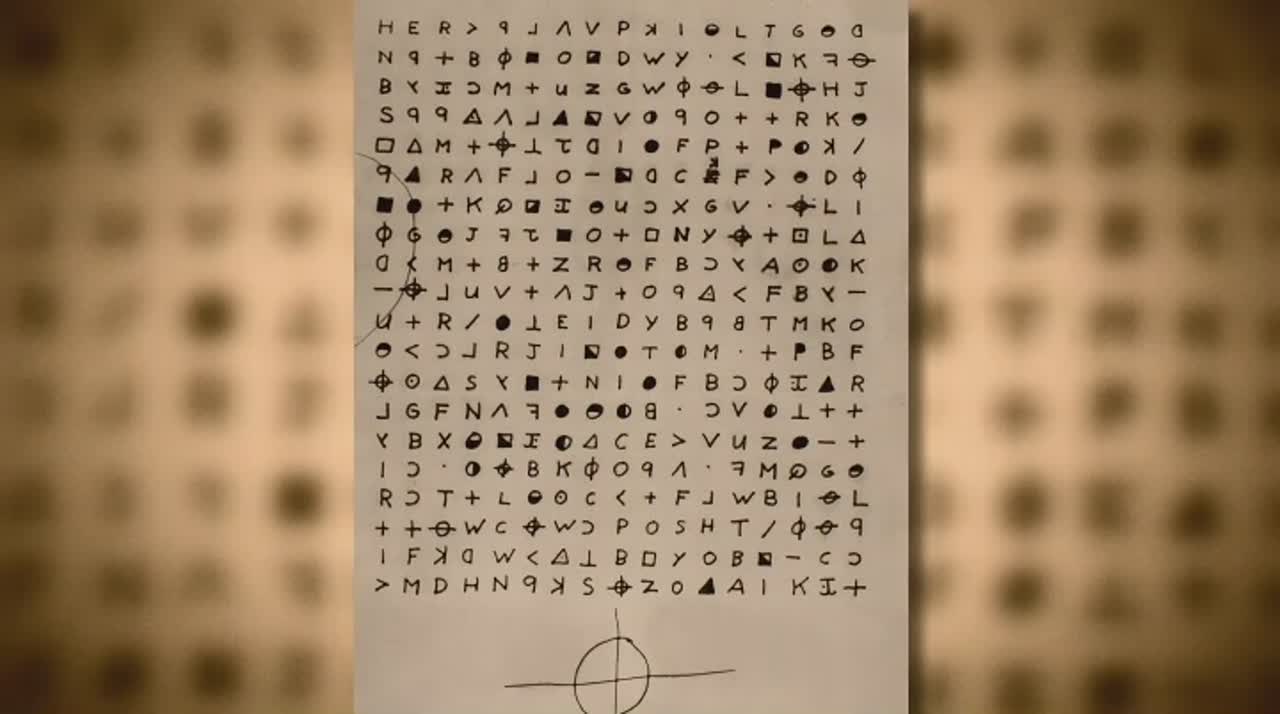 H E R > 9 ⅃ Λ V P ꓘ I ◒ L T G ◓ ᗡ
N 9 + B ϕ ■ O ◪ D W Y · < ◣ K ꟻ ⊖
B Y I Ɔ M + U Z G W ϕ ⊖ L ■ ⌖ H J
S 9 9 ∆ Λ ⅃ ▲ ◣ V ◑ 9 O + + R K ◓
□ ∆ M + ⌖ ⊥ τ ᗡ I ● F P + P ◐ ꓘ /
9 ▲ R Λ F ⅃ O − ◣ ᗡ C F > ◓ D ϕ
■ ● + K ∅ ◪ I ◓ U Ɔ X G V · ⌖ L I
ϕ G ◓ J ꟻ τ ■ O + □ N Y ⌖ + ⊡ L ∆
ᗡ < M + 8 + Z R ◓ F B Ɔ Y A ⊙ ◐ K
− ⌖ ⅃ U V + Λ J + O 9 ∆ < F B Y −
U + R / ● ⊥ E I D Y B 9 8 T M K O
◓ < Ɔ ⅃ R J I ◣ ● T ◐ M · + P B F
⌖ ⊙ ∆ S Y ■ + N I ● F B Ɔ ϕ I ▲ R
⅃ G F N Λ ꟻ ● ◓ ◐ B · Ɔ V ◐ ⊥ + +
Y B X ◒ ◣ I ◐ ∆ C E > V U Z ● − +
I Ɔ · ◑ ⌖ B K ϕ O 9 Λ · ꟻ M ∅ G ◓
R Ɔ T + L ◒ ⊙ C < + F ⅃ W B I ⊖ L
+ + ⊖ W C ⌖ W Ɔ P O S H T / ϕ ⊖ 9
I F ꓘ ᗡ W < ∆ ⊥ B □ Y O B ◣ − C Ɔ
> M D H N 9 ꓘ S ⌖ Z O ▲ A I K I +
⌖